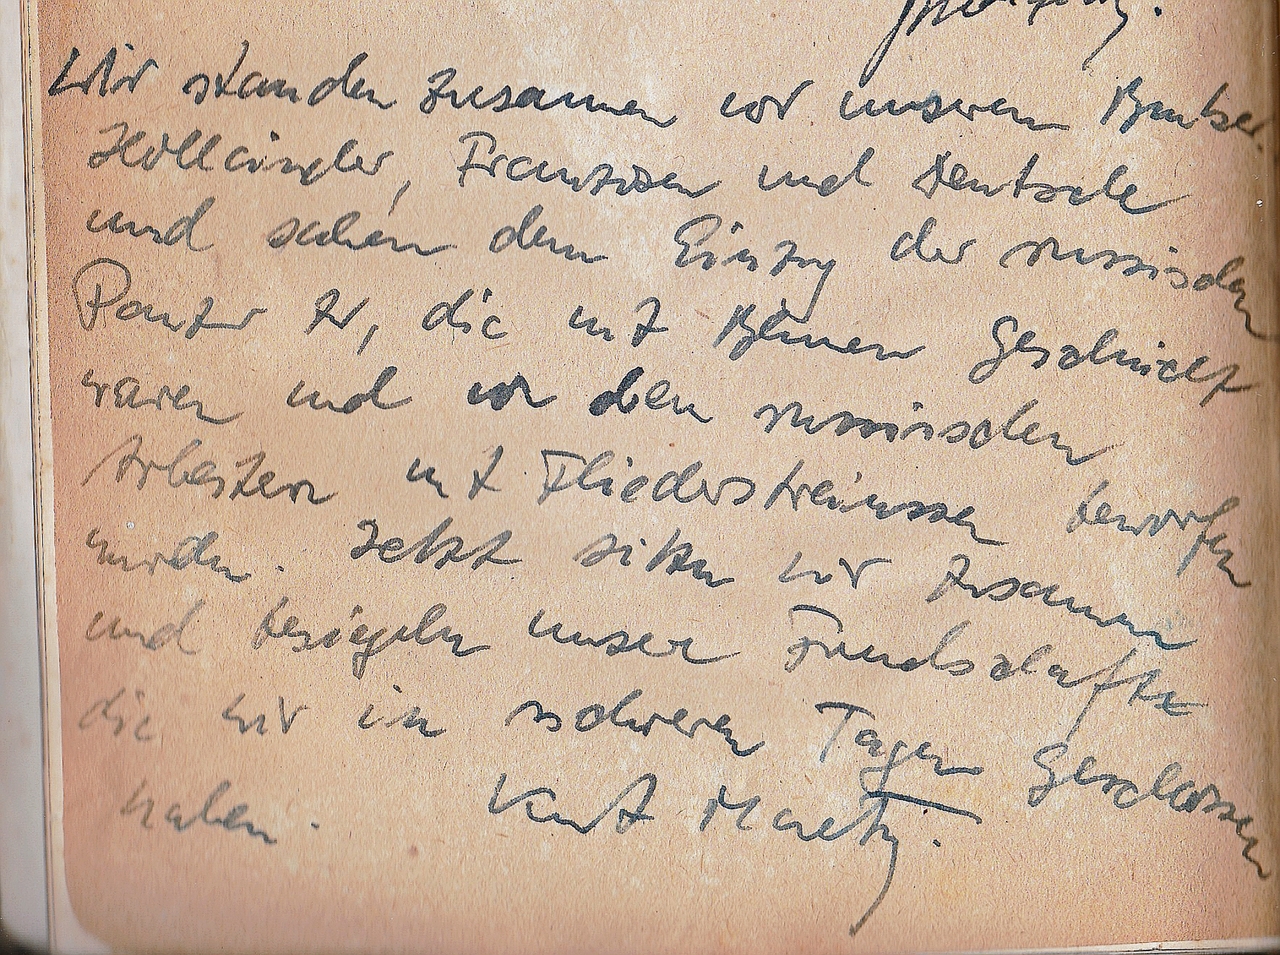 Wir standen zusammen vor unseren Bunker
Holländer, Franzosen und Deutsche
und sahen dem Einzug der russischen
Panzer zu, die mit Blumen geschmückt
waren und von den russischen
Arbeitern mit Fliedersträussen beworfen
wurden. Jetzt sitzen wir zusammen
und besiegeln unser Freundschaft
die wir in schweren Tagen geschlossen
haben. Kurt Maetzig.